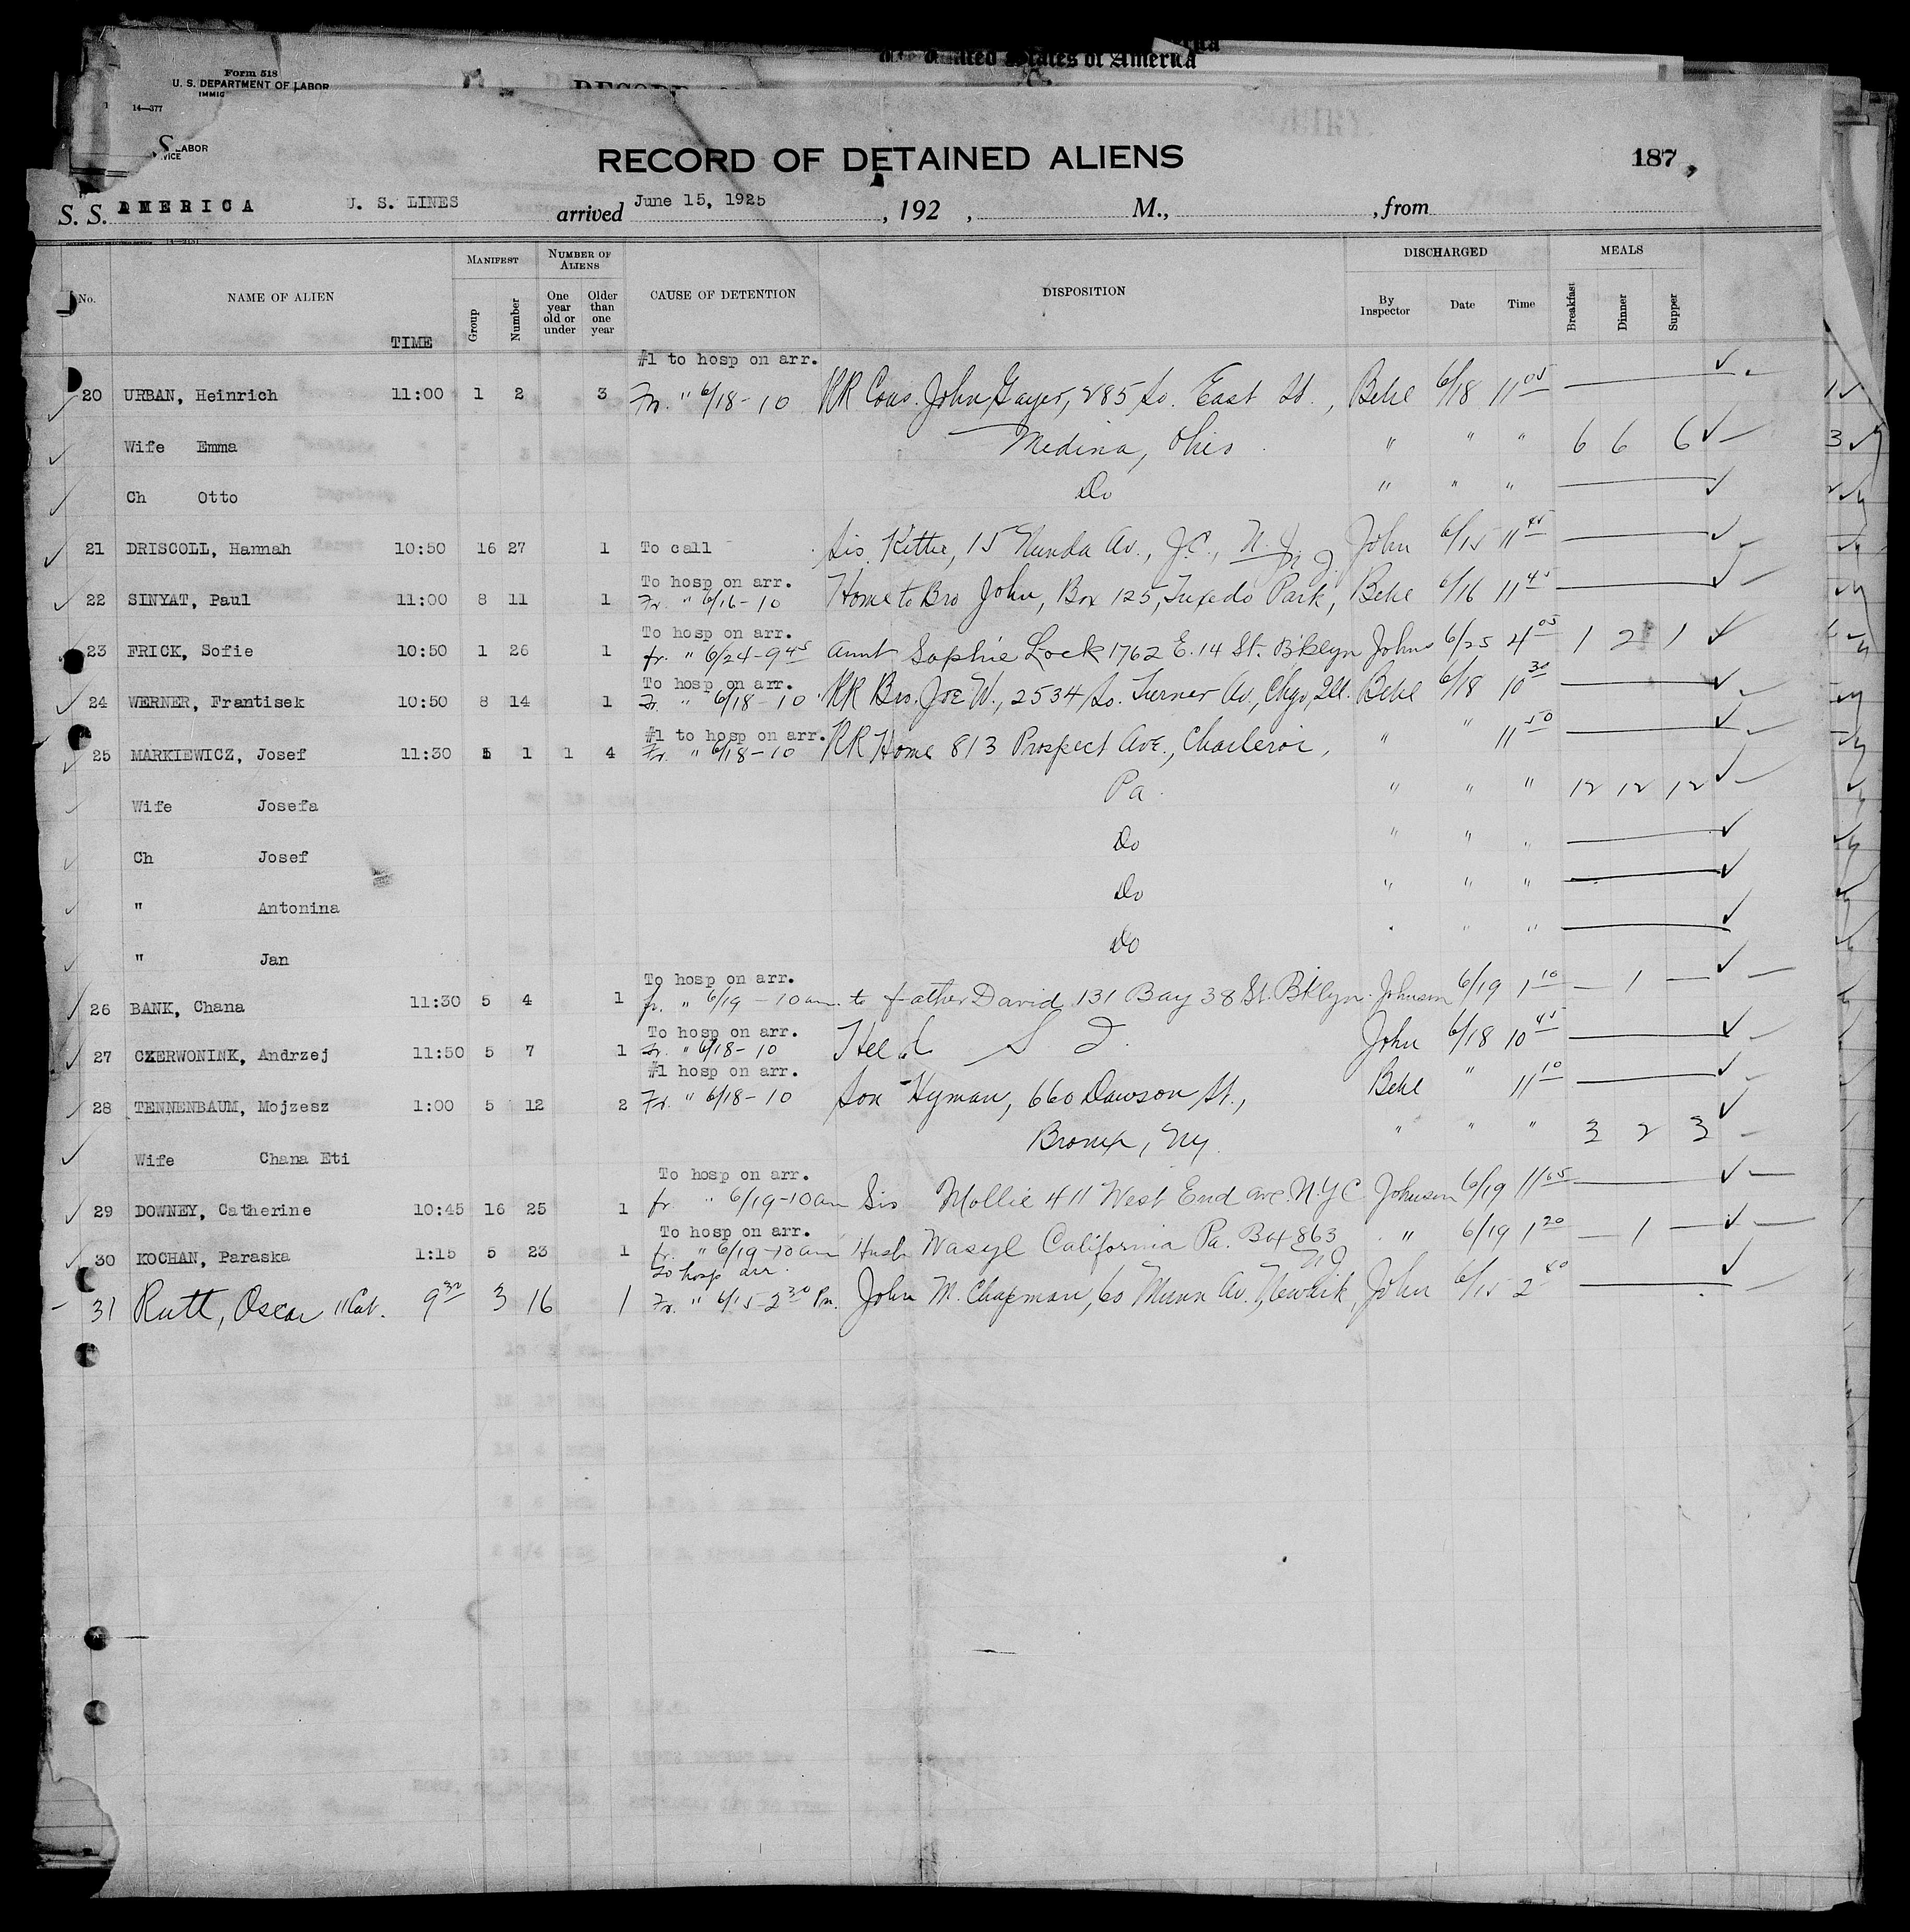 The United States of America
Form 518
U. S. DEPARTMENT OF LABOR
IMMIG
14—377
LABOR
VICE
RECORD OF DETAINED ALIENS
187
S. S. AMERICA U. S. LINES arrived June 15, 1925, 192 , M., , from
No. NAME OF ALIEN TIME MANIFEST Group Number NUMBER OF ALIENS One year old or under Older than one year CAUSE OF DETENTION DISPOSITION DISCHARGED By Inspector Date Time MEALS Breakfast Dinner Supper
#1 to hosp on arr.
20 URBAN, Heinrich 11:00 1 2 3 Fr. " 6/18-10 RR Cous. John Gayer, 285 So. East St., Behl 6/18 11 05
Wife Emma Medina, Ohio " " " 6 6 6
Ch Otto Do " " "
21 DRISCOLL, Hannah 10:50 16 27 1 To call Sis. Kittie, 15 Nunda Av., J.C., N.J. John 6/15 11 45
To hosp on arr. N.J.
22 SINYAT, Paul 11:00 8 11 1 Fr. " 6/16-10 Home to Bro John, Box 125, Tuxedo Park, Behl 6/16 11 45
To hosp on arr.
23 FRICK, Sofie 10:50 1 26 1 fr. " 6/24-9 45 Aunt Sophie Lock 1762 E. 14 St. B'klyn Johns 6/25 4 05 1 2 1
To hosp on arr.
24 WERNER, Frantisek 10:50 8 14 1 Fr. " 6/18-10 RR Bro. Joe W., 2534 So. Turner Av., Chgo, Ill. Behl 6/18 10 30
#1 to hosp on arr.
25 MARKIEWICZ, Josef 11:30 5 1 1 4 Fr. " 6/18-10 RR Home 813 Prospect Ave., Charleroi, " " 11 50
Wife Josefa Pa. " " " 12 12 12
Ch Josef Do " " "
" Antonina Do " " "
" Jan Do " " "
To hosp on arr.
26 BANK, Chana 11:30 5 4 1 fr. " 6/19-10am. to father David 131 Bay 38 St. Bklyn. Johnson 6/19 1 10 1
To hosp on arr.
27 CZERWONINK, Andrzej 11:50 5 7 1 Fr. " 6/18-10 Held S I. John 6/18 10 45
#1 hosp on arr.
28 TENNENBAUM, Mojzesz 1:00 5 12 2 Fr. " 6/18-10 Son Hyman, 660 Dawson St., Behl " 11 10
Wife Chana Eti Bronx, Ny. " " " 3 2 3
To hosp on arr.
29 DOWNEY, Catherine 10:45 16 25 1 fr. " 6/19-10am Sis Mollie 411 West End ave. N.Y.C Johnson 6/19 11 05
To hosp on arr.
30 KOCHAN, Paraska 1:15 5 23 1 fr. " 6/19-10am Husb Wasyl California Pa. Box 863 " 6/19 1 20 1
To hosp arr. N.J.
31 Rutt, Oscar 11 Cab. 9 30 3 16 1 Fr. " 6/15-2 30 Pm. John M. Chapman, 60 Munn Av., Newark, John 6/15 2 40